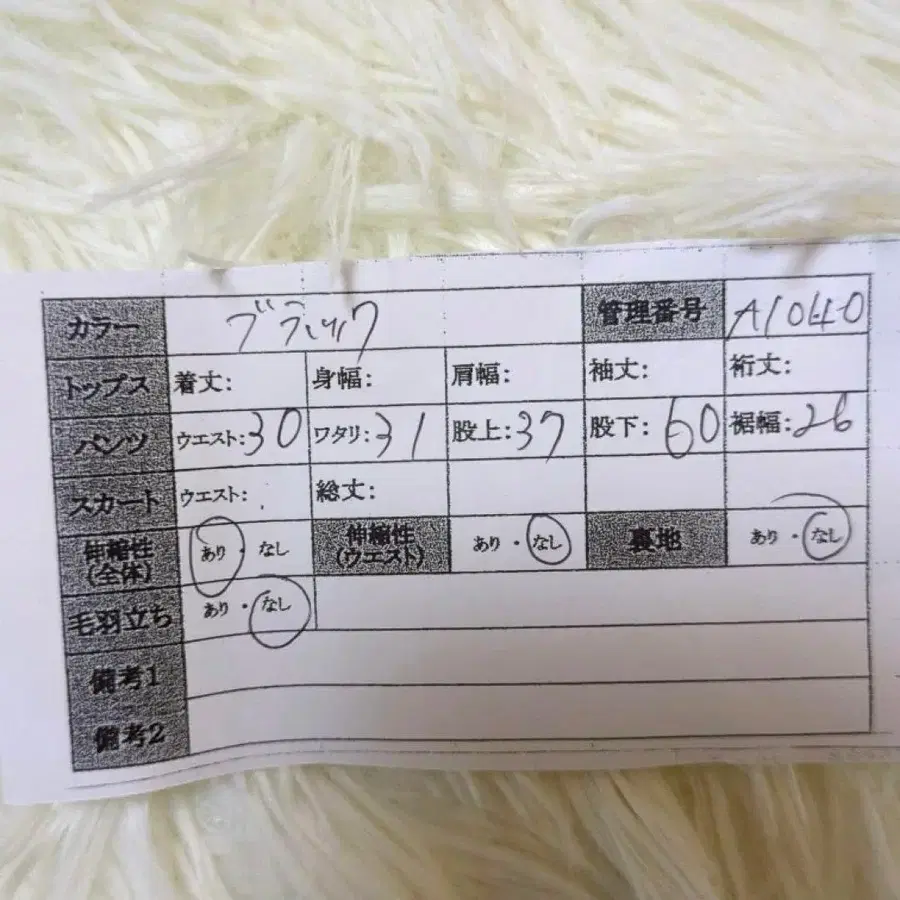 カラー ブラック 管理番号 A1040
トップス 着丈: 身幅: 肩幅: 袖丈: 裄丈:
パンツ ウエスト:30 ワタリ:31 股上:37 股下:60 裾幅:26
スカート ウエスト: 総丈:
伸縮性(全体) あり・なし 伸縮性(ウエスト) あり・なし 裏地 あり・なし
毛羽立ち あり・なし
備考1
備考2